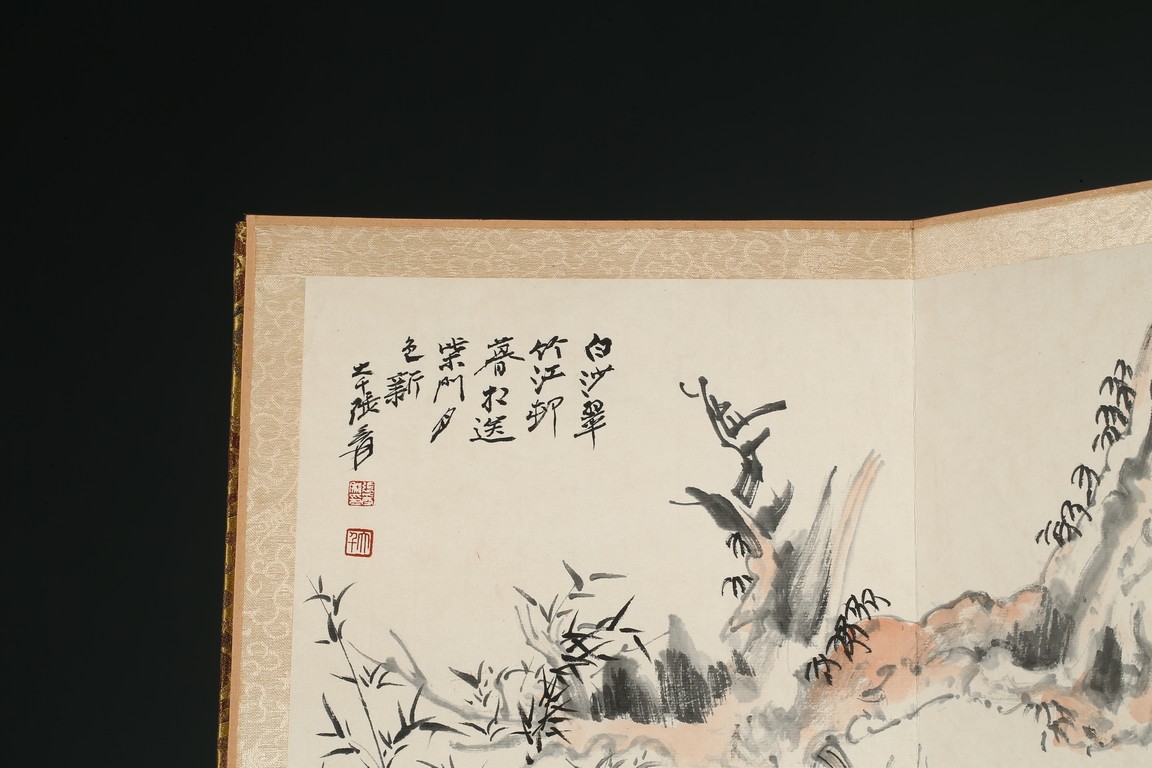 白沙翠
竹江邨
暮相送
柴門月
色新
大千張爰
大千